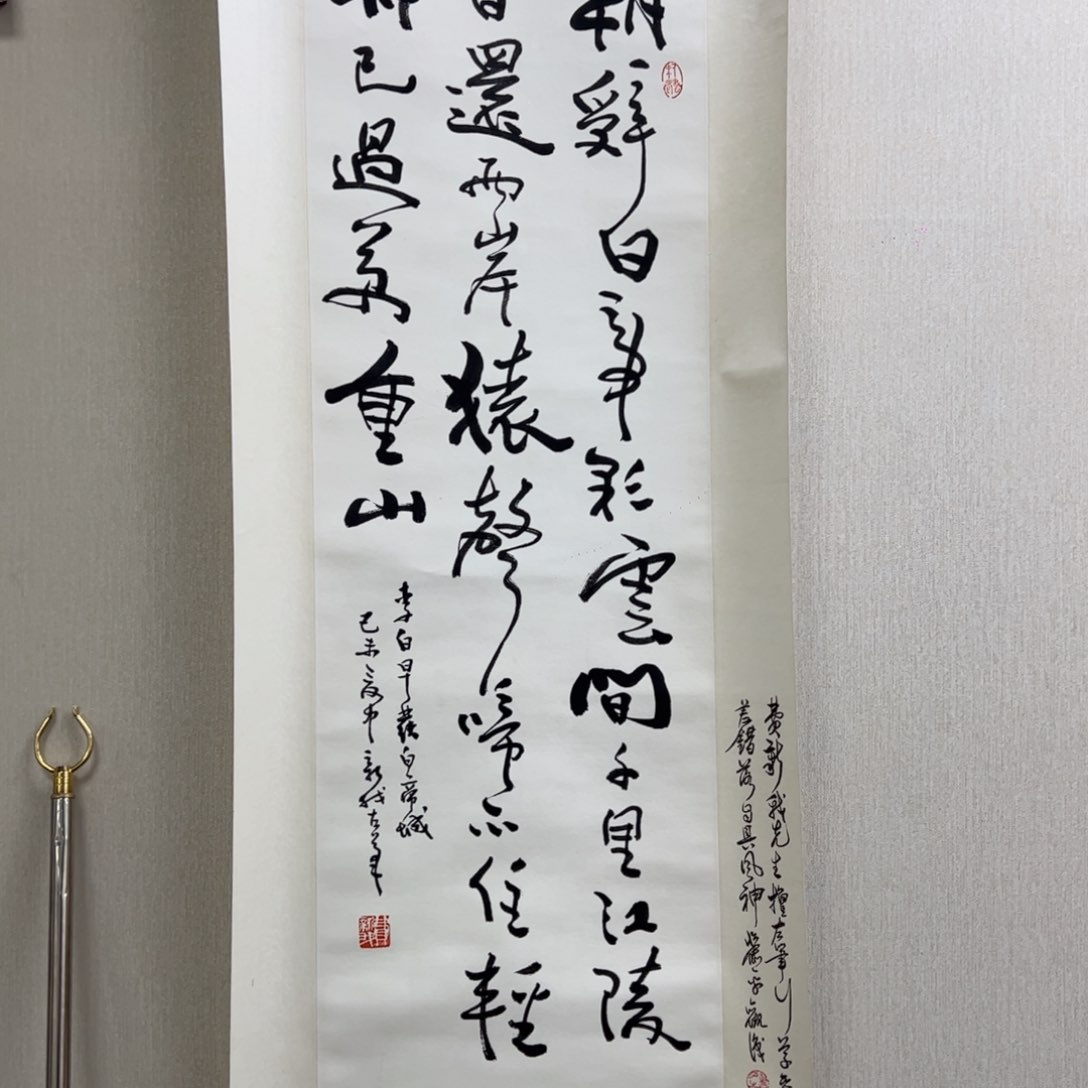 費新我先生擅左筆行草
錯落自具風神
朝辭白帝彩雲間千里江陵
日還兩岸猿聲啼不住輕
已過萬重山
李白早發白帝城
己未夏中新我左筆